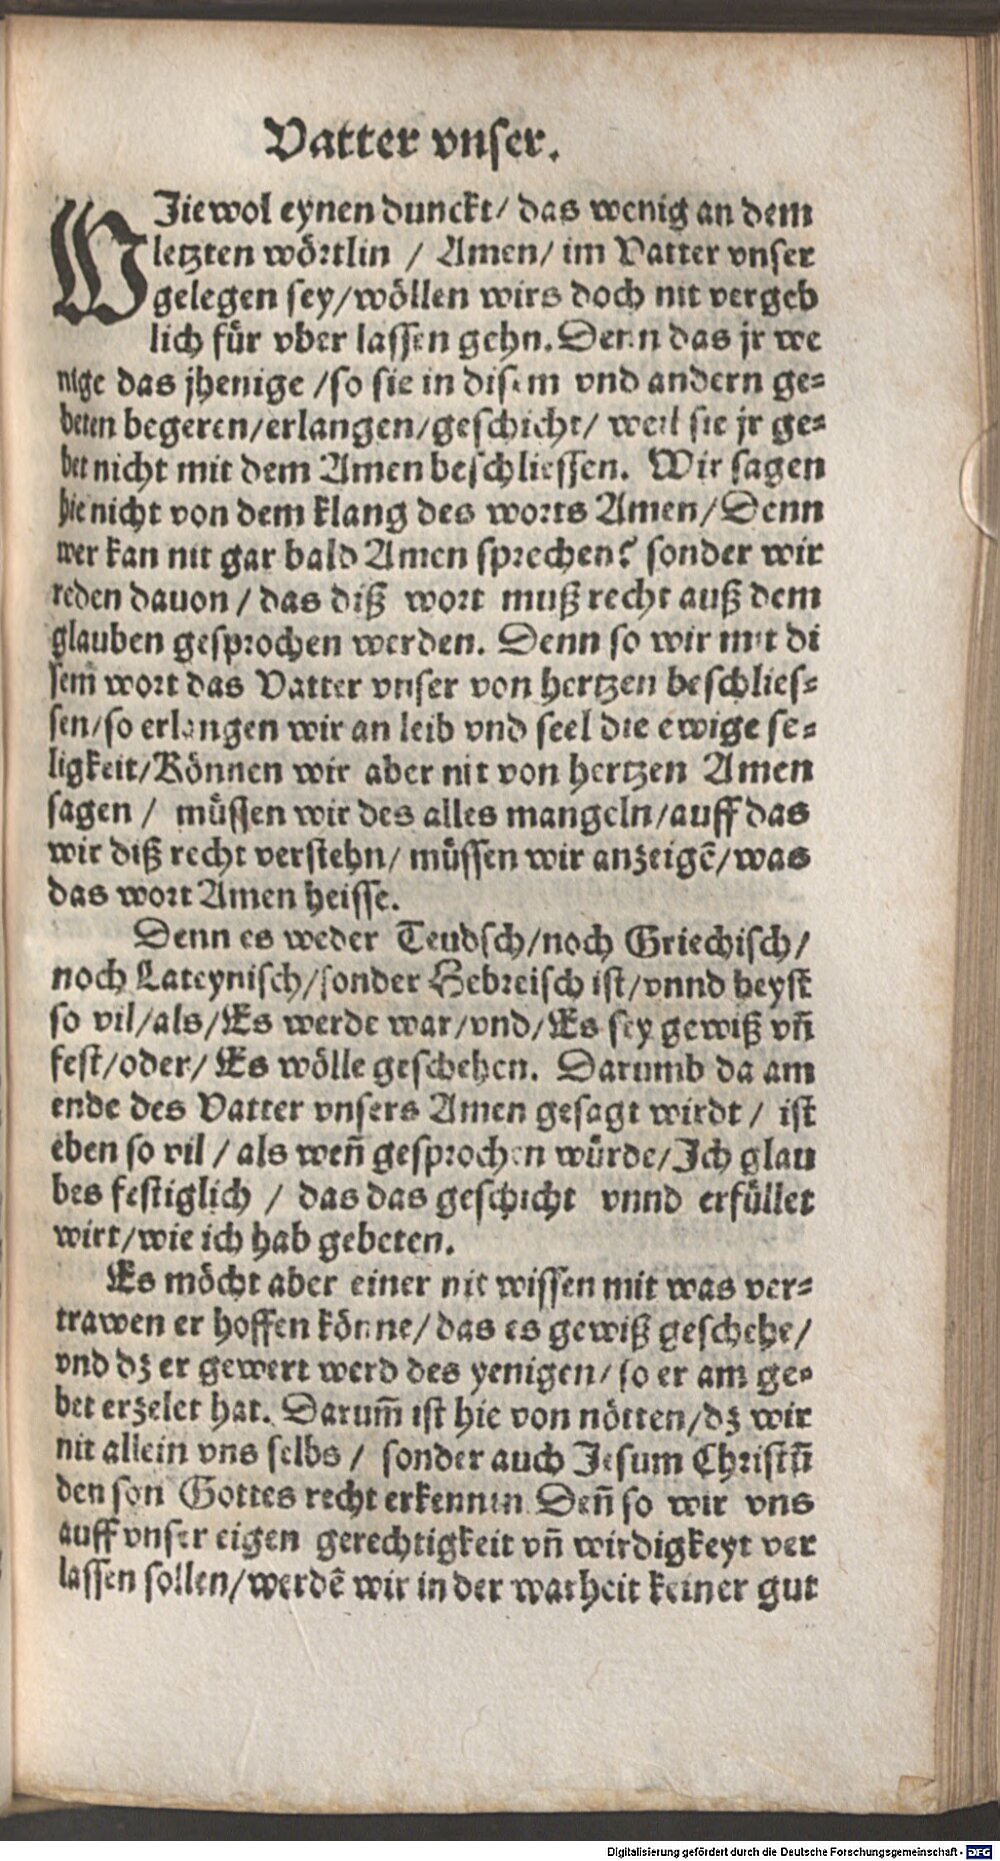 Vatter vnser.
WJiewol eynen dunckt/ das wenig an dem
letzten wörtlin / Amen/ im Vatter vnser
gelegen sey/wöllen wirs doch nit vergeb
lich für vber lassen gehn. Denn das jr we
nige das jhenige /so sie in disem vnd andern ge=
beten begeren/erlangen/geschicht/ weil sie jr ge=
bet nicht mit dem Amen beschliessen. Wir sagen
hie nicht von dem klang des worts Amen/Denn
wer kan nit gar bald Amen sprechen? sonder wir
reden dauon / das diß wort muß recht auß dem
glauben gesprochen werden. Denn so wir mit di
sem̄ wort das Vatter vnser von hertzen beschlies=
sen/so erlangen wir an leib vnd seel die ewige se=
ligkeit/Können wir aber nit von hertzen Amen
sagen / müssen wir des alles mangeln/auff das
wir diß recht verstehn/ müssen wir anzeigē/was
das wort Amen heisse.
Denn es weder Teudsch/noch Griechisch/
noch Lateynisch/sonder Hebreisch ist/vnnd heyst
so vil/als/Es werde war/vnd/Es sey gewiß vn̄
fest/oder/ Es wölle geschehen. Darumb da am
ende des Vatter vnsers Amen gesagt wirdt / ist
eben so vil / als wen̄ gesprochen würde/Jch glau
bes festiglich / das das geschicht vnnd erfüllet
wirt/wie ich hab gebeten.
Es möcht aber einer nit wissen mit was ver=
trawen er hoffen könne/das es gewiß geschehe/
vnd dz er gewert werd des yenigen/ so er am ge=
bet erzelet hat. Darum̄ ist hie von nötten/dz wir
nit allein vns selbs / sonder auch Jesum Christū
den son Gottes recht erkennen Den̄ so wir vns
auff vnser eigen gerechtigkeit vn̄ wirdigkeyt ver
lassen sollen/werdē wir in der warheit keiner gut
Digitalisierung gefördert durch die Deutsche Forschungsgemeinschaft - DFG